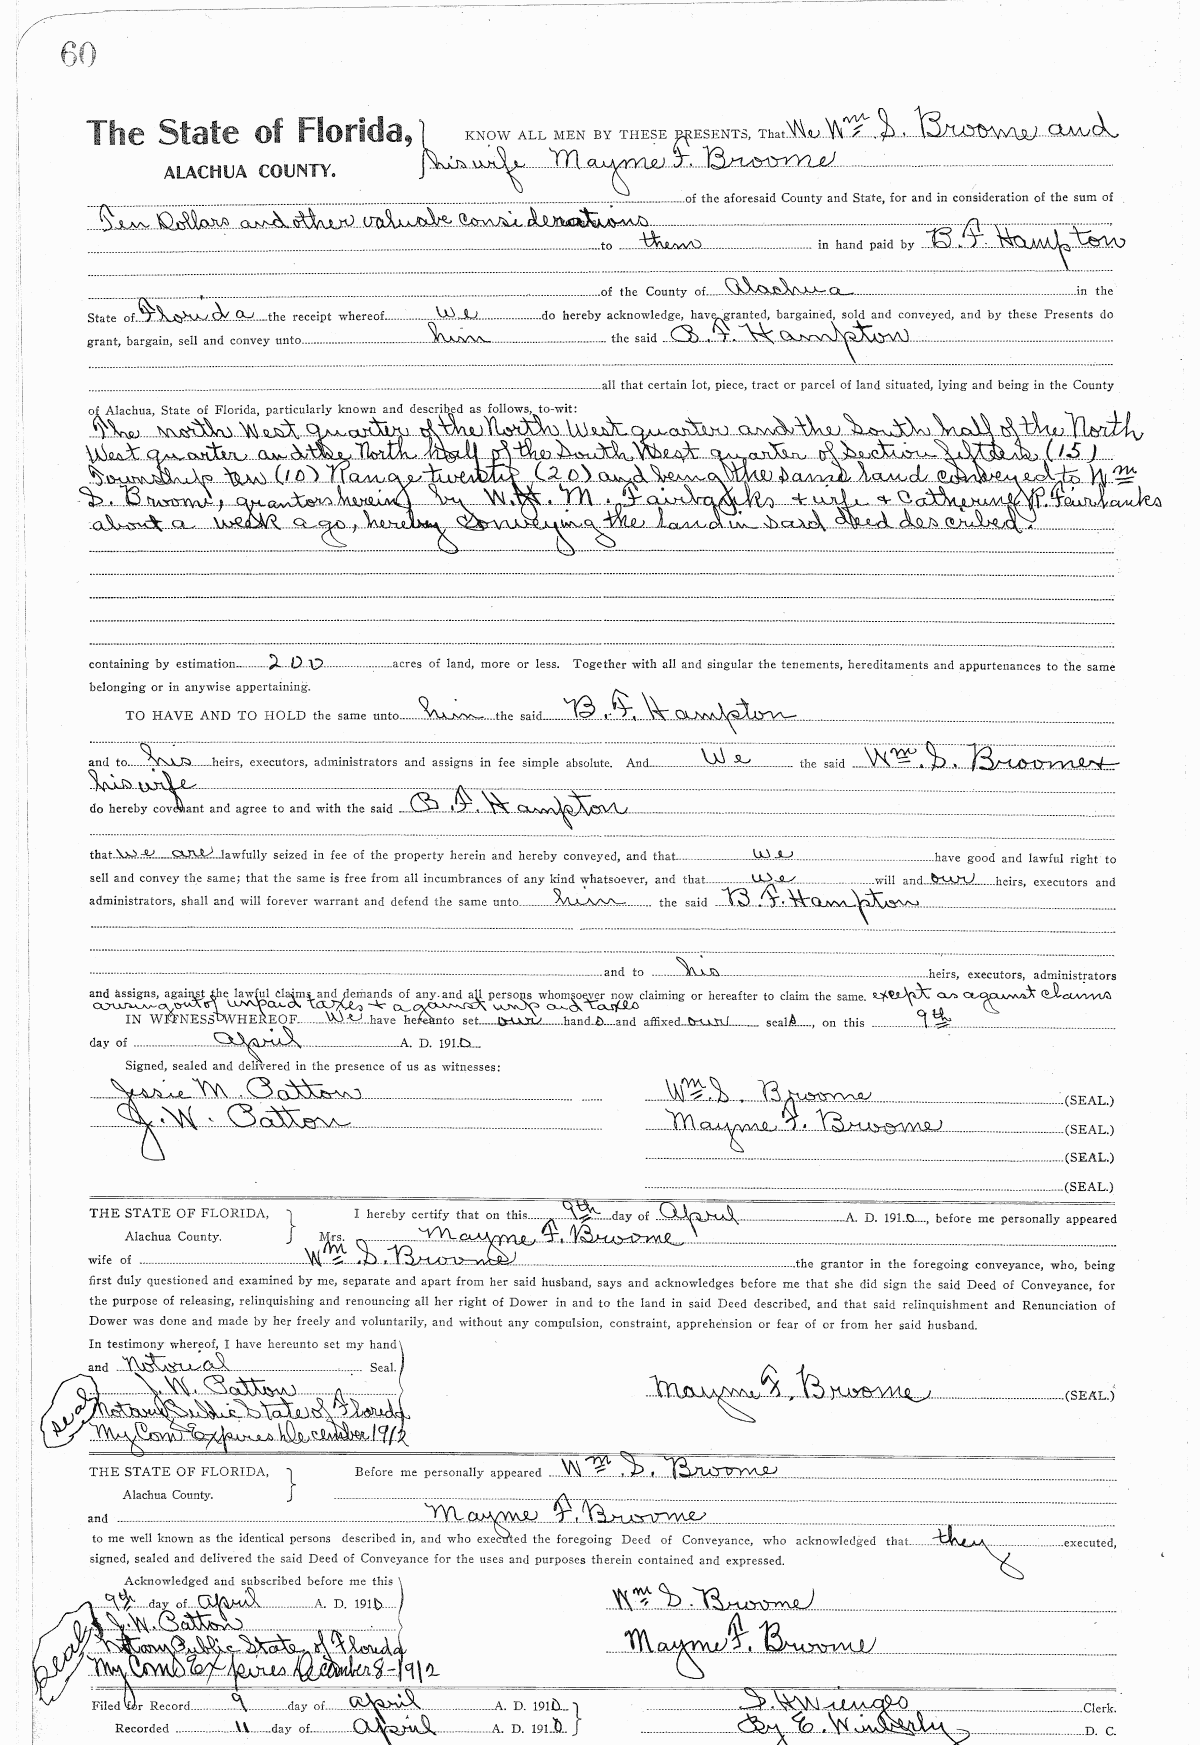 60
The State of Florida, KNOW ALL MEN BY THESE PRESENTS, That We Wm S. Broome and
ALACHUA COUNTY. his wife Mayme F. Broome
of the aforesaid County and State, for and in consideration of the sum of
Ten Dollars and other valuabe considerations
to them in hand paid by B. F. Hampton
of the County of Alachua in the
State of Florida the receipt whereof we do hereby acknowledge, have granted, bargained, sold and conveyed, and by these Presents do
grant, bargain, sell and convey unto him the said B. F. Hampton
all that certain lot, piece, tract or parcel of land situated, lying and being in the County
of Alachua, State of Florida, particularly known and described as follows, to-wit:
The north West quarter of the North West quarter and the South half of the North
West quarter and the North half of the South West quarter of Section fifteen (15)
Township ten (10) Range twenty (20) and being the same land conveyed to Wm
S. Broome, grantors herein, by W. H. M. Fairbanks & wife & Catherine R. Fairbanks
about a week ago, hereby conveying the land in said deed described.
containing by estimation 200 acres of land, more or less. Together with all and singular the tenements, hereditaments and appurtenances to the same
belonging or in anywise appertaining.
TO HAVE AND TO HOLD the same unto him the said B. F. Hampton
and to his heirs, executors, administrators and assigns in fee simple absolute. And We the said Wm. S. Broome &
his wife
do hereby covenant and agree to and with the said B. F. Hampton
that we are lawfully seized in fee of the property herein and hereby conveyed, and that we have good and lawful right to
sell and convey the same; that the same is free from all incumbrances of any kind whatsoever, and that we will and our heirs, executors and
administrators, shall and will forever warrant and defend the same unto him the said B. F. Hampton
and to his heirs, executors, administrators
and assigns, against the lawful claims and demands of any and all persons whomsoever now claiming or hereafter to claim the same. except as against claims
arising out of unpaid taxes & against unpaid taxes
IN WITNESS WHEREOF We have hereunto set our hands and affixed our seals, on this 9th
day of April A. D. 1910
Signed, sealed and delivered in the presence of us as witnesses:
Jessie M. Patton Wm. S. Broome (SEAL.)
J. W. Patton Mayme F. Broome (SEAL.)
(SEAL.)
(SEAL.)
THE STATE OF FLORIDA, I hereby certify that on this 9th day of April A. D. 1910, before me personally appeared
Alachua County. Mrs. Mayme F. Broome
wife of Wm S. Broome the grantor in the foregoing conveyance, who, being
first duly questioned and examined by me, separate and apart from her said husband, says and acknowledges before me that she did sign the said Deed of Conveyance, for
the purpose of releasing, relinquishing and renouncing all her right of Dower in and to the land in said Deed described, and that said relinquishment and Renunciation of
Dower was done and made by her freely and voluntarily, and without any compulsion, constraint, apprehension or fear of or from her said husband.
In testimony whereof, I have hereunto set my hand
and Notorial Seal.
J. W. Patton Mayme F. Broome (SEAL.)
seal Notary Public State of Florida
My Com Expires December 1912
THE STATE OF FLORIDA, Before me personally appeared Wm. S. Broome
Alachua County.
and Mayme F. Broome
to me well known as the identical persons described in, and who executed the foregoing Deed of Conveyance, who acknowledged that they executed,
signed, sealed and delivered the said Deed of Conveyance for the uses and purposes therein contained and expressed.
Acknowledged and subscribed before me this
9th day of April A. D. 1910 Wm S. Broome
J. W. Patton
seal Notary Public State of Florida Mayme F. Broome
My Coms Expires December 8-1912
Filed for Record 9 day of April A. D. 1910 Clerk.
Recorded 11 day of April A. D. 1910 By E. Wimberly D. C.